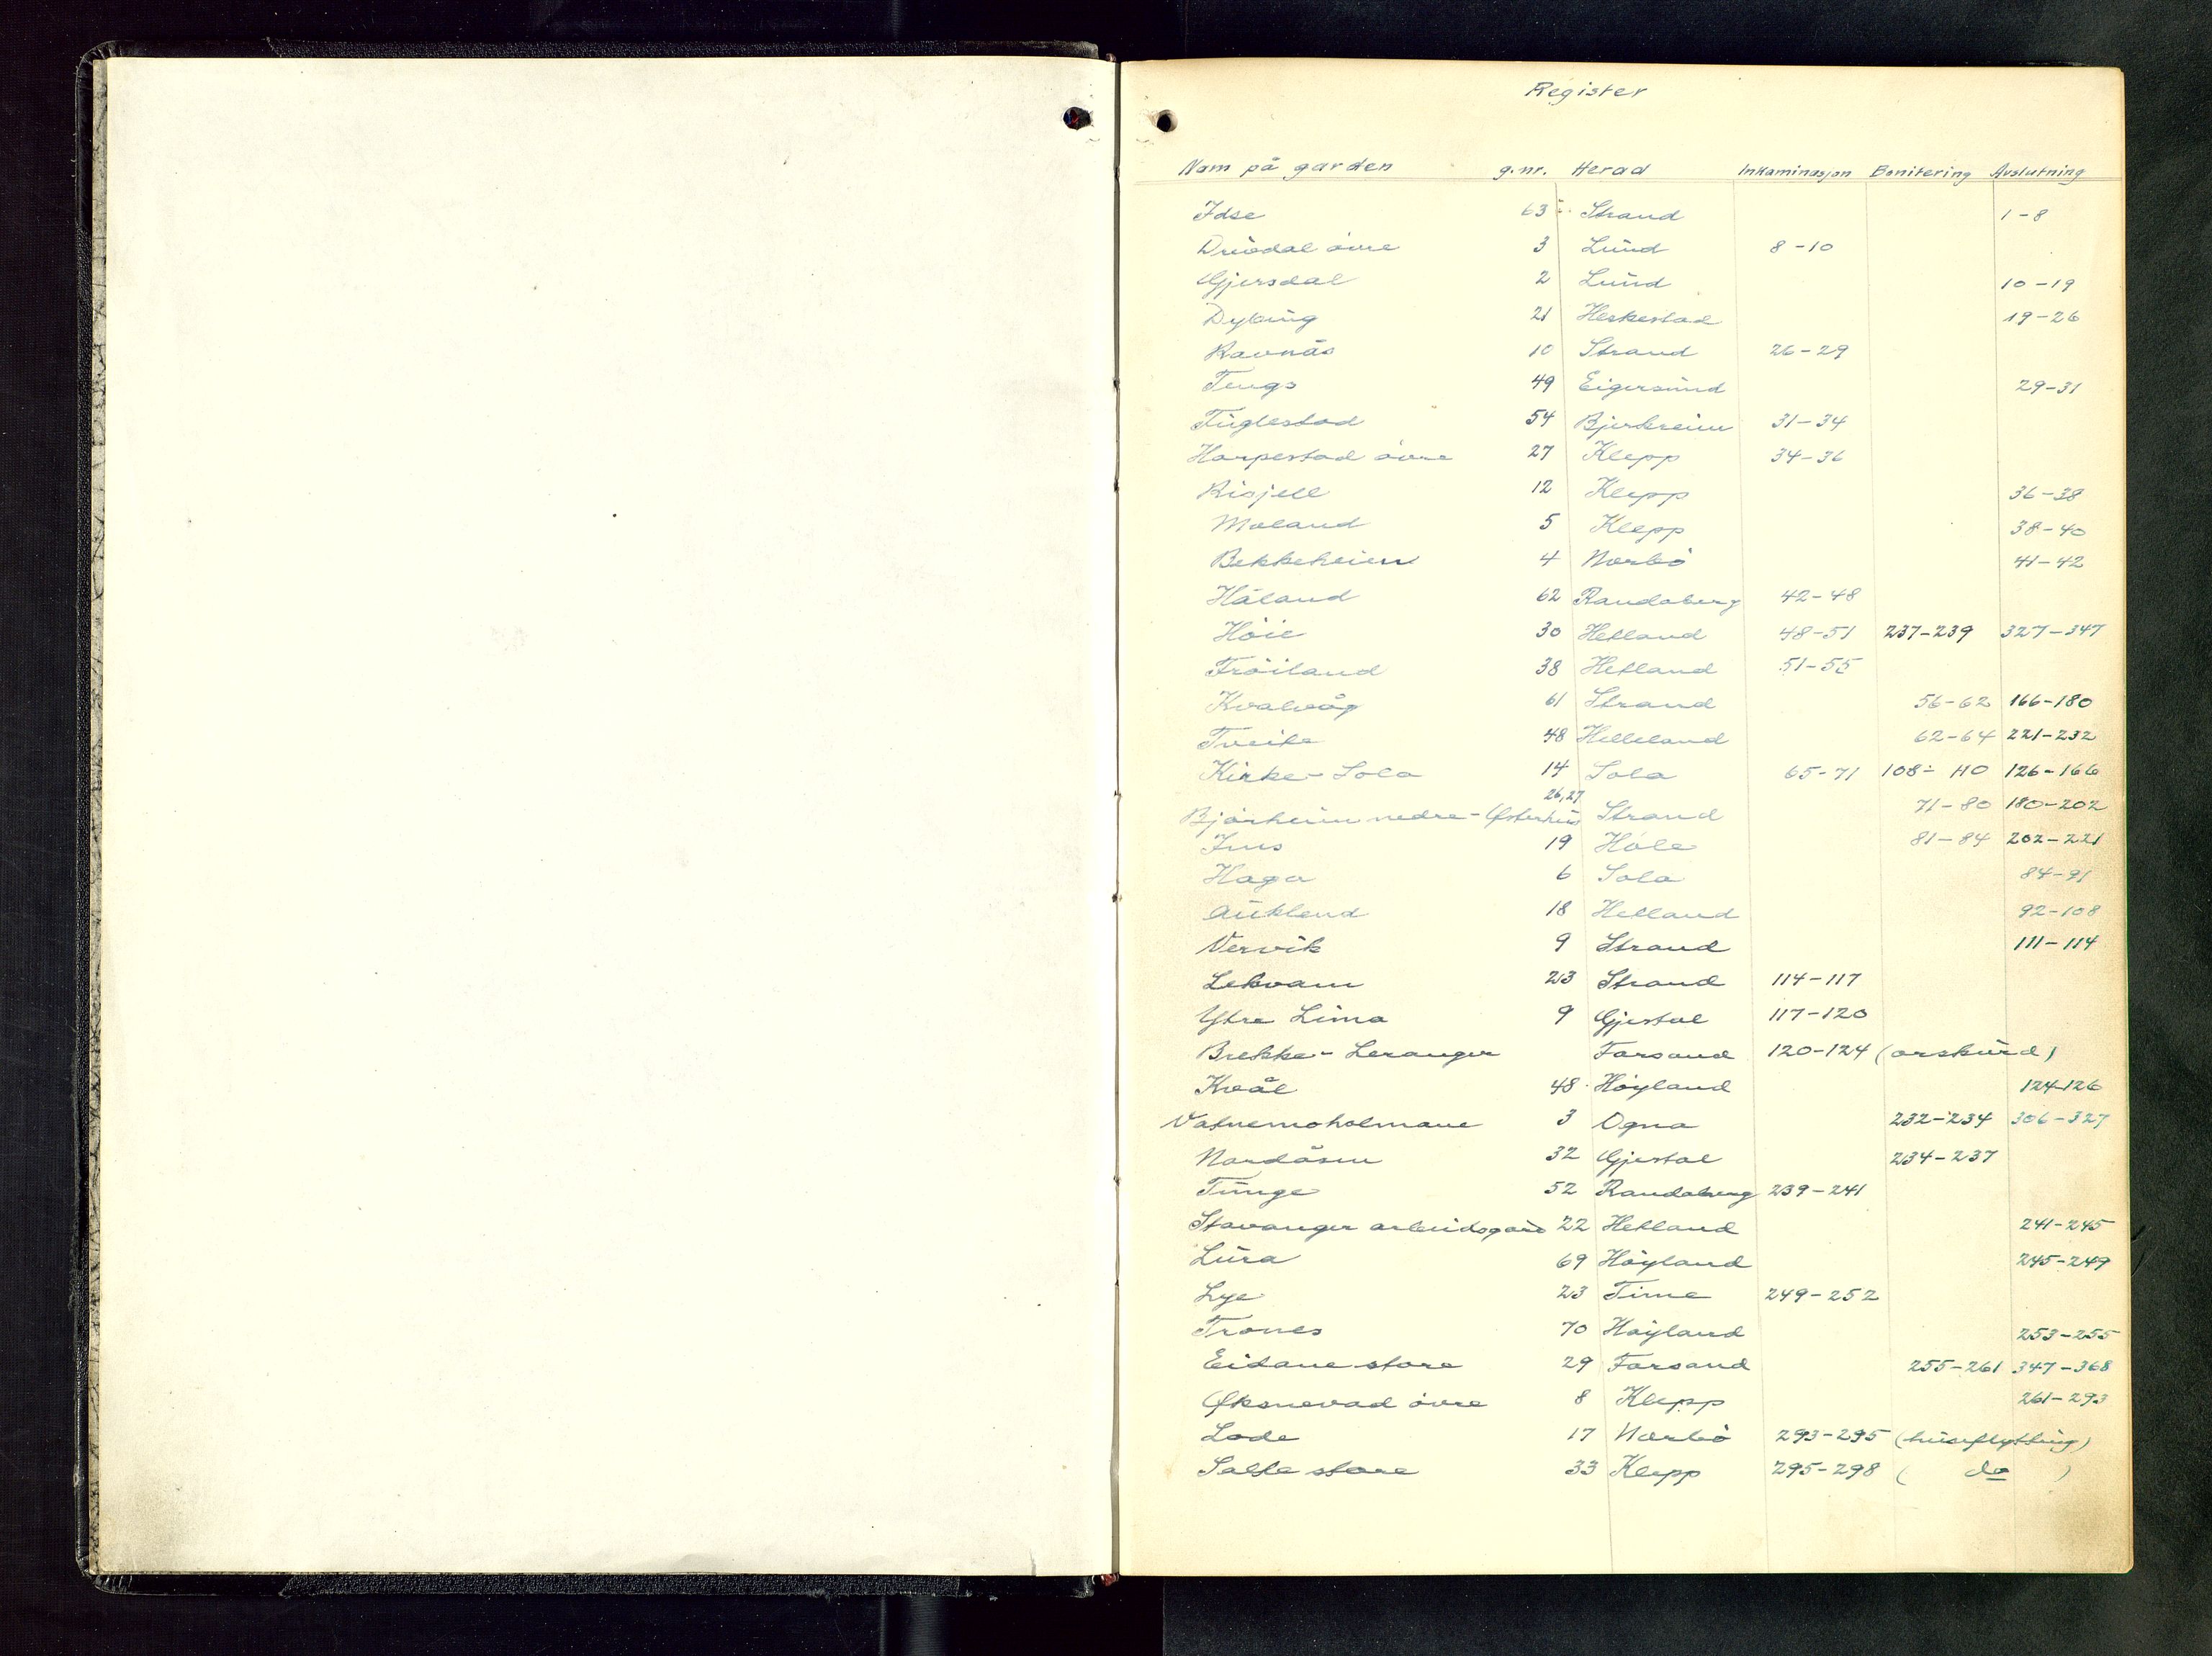 Register
Nam på garden g.nr. Herad Inkaminasjon Bonitering Avslutning
Idse 63 Strand 1-8
Drivdal övre 3 Lund 8-10
Gjersdal 2 Lund 10-19
Dybing 21 Heskestad 19-26
Ravnås 10 Strand 26-29
Tengs 49 Eigersund 29-31
Fuglestad 54 Bjerkreim 31-34
Harpestad övre 27 Klepp 34-36
Risjell 12 Klepp 36-38
Moland 5 Klepp 38-40
Bekkeheien 4 Nærbö 41-42
Håland 62 Randaberg 42-48
Höie 30 Hetland 48-51 237-239 327-347
Fröiland 38 Hetland 51-55
Kvalvåg 61 Strand 56-62 166-180
Tveita 48 Helleland 62-64 221-232
Kirke-Sola 14 Sola 65-71 108-110 126-166
Bjórheim nedre-Østerhus 26,27 Strand 71-80 180-202
Ims 19 Höle 81-84 202-221
Haga 6 Sola 84-91
Auklend 18 Hetland 92-108
Vervik 9 Strand 111-114
Lekvam 23 Strand 114-117
Ytre Lima 9 Gjestal 117-120
Brekke-Leranger Forsand 120-124 (orskurd)
Kvål 48 Höyland 124-126
Vatnemoholmane 3 Ogna 232-234 306-327
Nordåsen 32 Gjestal 234-237
Tunge 52 Randaberg 239-241
Stavanger arbeidsgard 22 Hetland 241-245
Lura 69 Höyland 245-249
Lye 23 Time 249-252
Trones 70 Höyland 253-255
Eidane store 29 Forsand 255-261 347-368
Øksnevad övre 8 Klepp 261-293
Lode 17 Nærbö 293-295 (husflytting)
Salte store 33 Klepp 295-298 ( do )